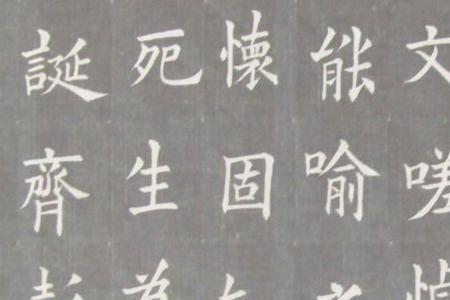 文嗟
能喻
懷固
死生為
誕齊彭